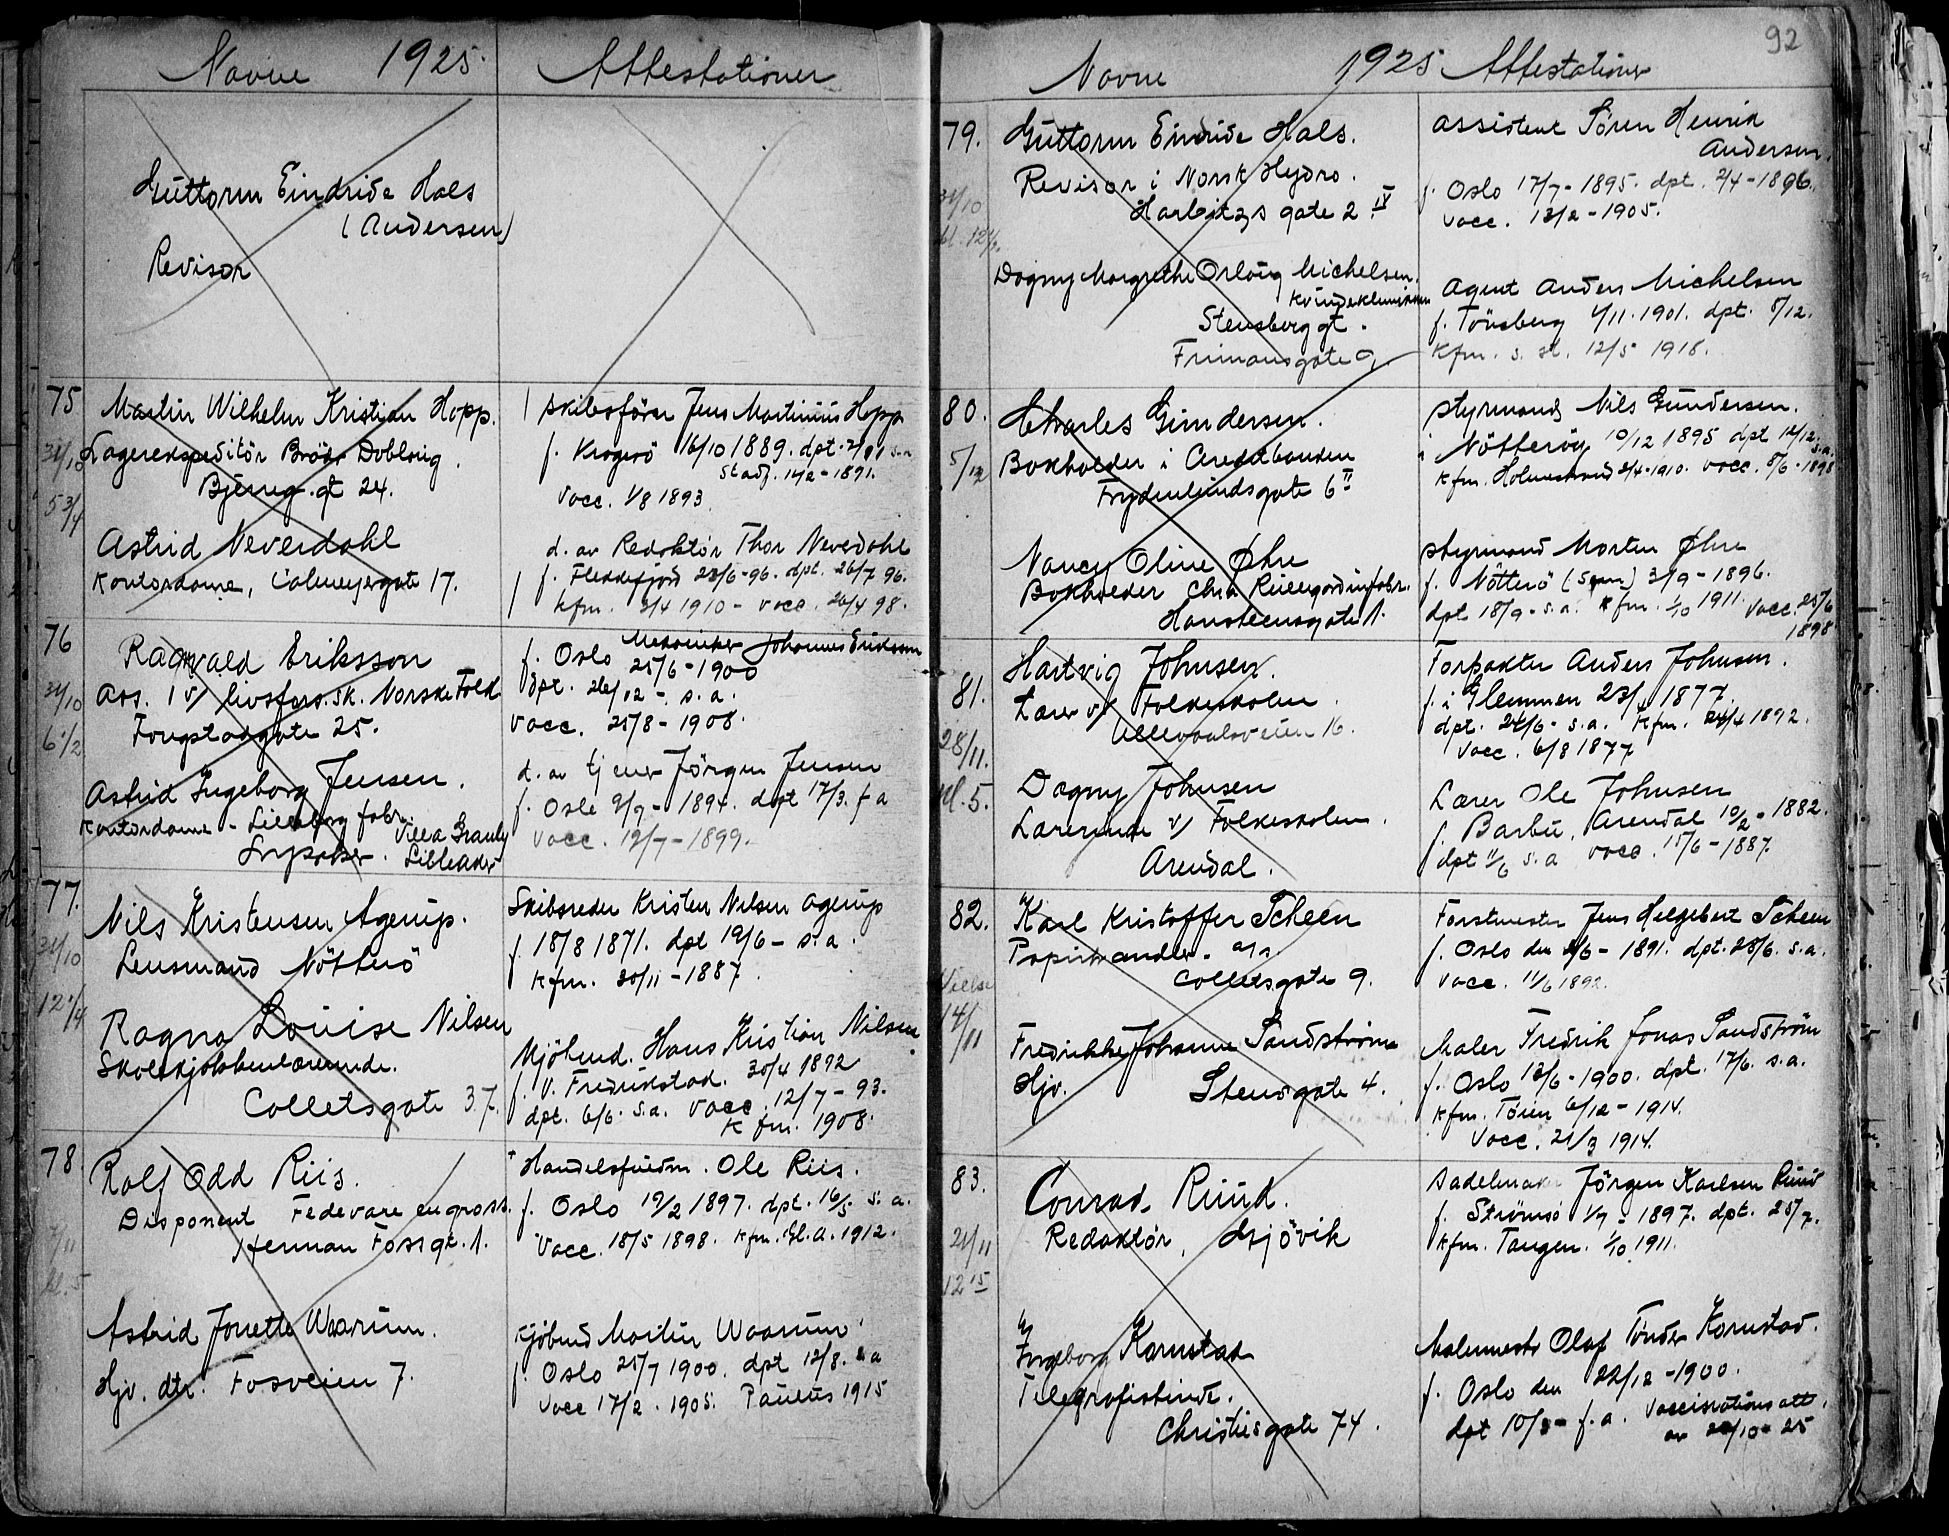 Navne 1925. Attestationer
Guttorm Eindride Hals
(Andersen)
Revisor
75
31/10
5 3/4
Martin Wilhelm Kristian Hopp.
Lagerekspeditör Brödr Dobloug.
Bjerreg. gt 24.
Astrid Neverdahl
Kontordame, Calmeyergate 17.
Skibsförer Jens Martinius Hopp
f. Kragerö 16/10 1889. dpt.
Stadf. 14/2-1891.
Vacc. 1/8 1893
d. av Redaktör Thor Neverdahl
f. Flekkefjord 23/6-96. dpt. 26/7 96.
kfm. 3/4 1910 - vacc. 26/4 98.
76
31/10
6 1/2
Ragnvald Eriksson
Ass. i v/ livsfors.sk. Norske Folk
Fougstadgate 25.
Astrid Ingeborg Jensen.
Kontordame - Lilleborg fabr.
Villa Granly
Lysaker. Lilleaker
Mekaniker Johannes Eriksson
f. Oslo 25/6-1900
dpt. 26/12 - s.a.
vacc. 25/8-1908.
d. av tjener Jörgen Jensen
f. Oslo 9/9-1894. dpt 17/3. f a
Vacc. 12/7-1899.
77.
31/10
12 1/4
Nils Kristensen Agerup.
Lensmand Nötterö
Ragna Louise Nilsen
Skolekjökkenlærerinde.
Colletsgate 37.
Skibsreder Kristen Nilsen Agerup
f. 18/8 1871. dpt 19/6 - s.a.
Kfm. 20/11-1887
Kjöbmd. Hans Kristian Nilsen.
f. V. Fredrikstad. 30/4 1892
dpt. 6/6. s.a. Vacc. 12/7-93.
Kfm. 1908.
78
7/11
kl. 5
Rolf Odd Riis.
Disponent Fedevare engros.
Herman Fossgt. 1.
Astrid Jonette Waarum.
Hjv. dtr. Fosveien 7.
Handelsfuldm. Ole Riis.
f. Oslo 19/2 1897. dpt. 16/5 s.a.
Vacc. 18/5 1898. Kfm. Gl.A. 1912.
Kjöbmd Martin Waarum
f. Oslo 25/7 1900. dpt 12/8. s.a
Vacc 17/2. 1905. Paulus 1915
92
Navne 1925 Attestationer
79.
31/10
kl. 12 1/2
Guttorm Eindride Hals.
Revisor i Norsk Hydro.
Harbitzs gate 2 IV
Dagny Margrethe Orlaug Michelsen.
Kvindeklinikken
Stensberg gt.
Frimansgate 9
Assistent Sören Henrik
Andersen.
f. Oslo 17/7-1895. dpt. 2/4-1896.
vacc. 13/2-1905.
Agent Anders Michelsen
f. Tönsberg 4/11.1901. dpt. 8/12.
Kfm. s. st. 12/5 1918.
80.
5/12
Charles Gundersen.
Bokholder i Creditbanken
Frydenlundsgate 6 II
Nancy Oline Øhre
Bokholder Chra
Hansteensgate 1.
Styrmand Nils Gundersen.
i Nötteröy 10/12 1895 dpt 12/12. s.a.
Kfm. Holmestrand 3/4-1910. vacc. 8/6-1898
Styrmand Morten Øhre
f. Nötterö (Sem) 3/9-1896.
dpt 18/9-s.a. Kfm. 1/10 1911. Vacc. 25/6
1898
81.
28/11.
kl. 5.
Hartvig Johnsen.
Lærer v/ Folkeskolen.
Ullevaalsveien 16.
Dagny Johnsen
Lærerinde v/ Folkeskolen.
Arendal.
Forpakter Anders Johnsen.
f. i Glemmen 23/4 1877.
dpt. 24/6-s.a. Kfm. 24/4 1892.
Vacc. 6/8 1877
Lærer Ole Johnsen
f. Barbu, Arendal 19/2-1882.
dpt 11/6 s.a vacc. 15/6-1887.
82.
Vielse
14/11
Karl Kristoffer Scheen
Papirhandler.
Colletsgate 9.
Fredrikke Johanne Sandström
Hjv. Stensgate 4.
Forstmester Jens Helgebert Scheen
f. Oslo den 2/6-1891. dpt. 28/6. s.a.
Vacc. 11/6 1892.
Maler Fredrik Jonas Sandström
f. Oslo 13/6-1900. dpt. 17/6. s.a.
Kfm. Töien 6/12-1914.
Vacc. 21/3 1914.
83.
21/11
12 15
Conrad Ruud.
Redaktör, Gjövik
Ingeborg Karnstad
Telegrafistinde.
Christiesgate 74.
Sadelmaker Jörgen Karlsen Ruud
f. Strömsö 1/7-1897. dpt. 25/7.
Kfm. Tangen. 1/10 1911.
Malermester Olaf Tönder Karnstad.
f. Oslo den 22/12-1900.
dpt 10/3-f.a. Vaccinationsatt.
av 20/10-25